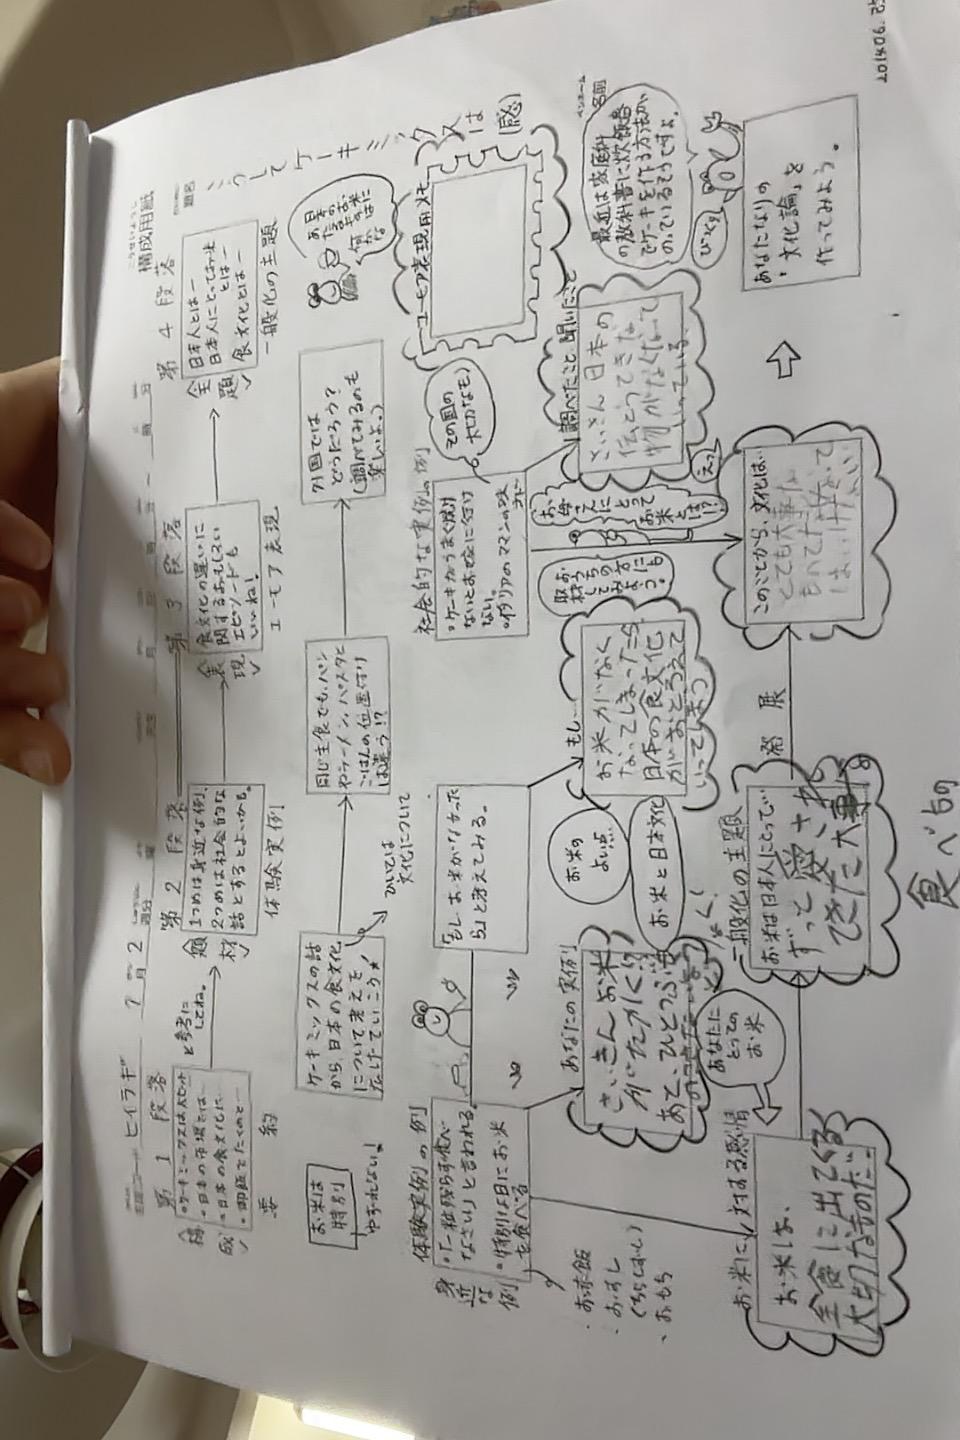 構成用紙
こうしてケーキミックスは(惑)
ヒイラギ
7月2
週分
第1段落
・ケーキミックスは大ヒット
・日本の市場では…
・日本の食文化に…
・御飯でたくのと…
構成
要約
と参考に
してね。
第2段落
1つめは身近な例、
2つめは社会的な
話とするとよいかも。
題材
体験実例
第3段落
食文化の違いに
関するおもしろい
エピソードも
いいね!
表現
ユーモア表現
第4段落
日本人とは―
日本人にとってお米
とは―
食文化とは―
主題
一般化の主題
お米は
特別
ケーキミックスの話
から、日本の食文化
について考えを
広げていこう★
ひいては
文化について
同じ主食でも、パン
やラーメン、パスタと
ごはんの位置付け
は違う!?
外国では
どうだろう?
(調べてみるのも
楽しいよ。)
身近な例
体験実例の例
・「一粒残らず食べ
なさい」と言われる。
・特別な日にお米
を食べる
・お赤飯
・おすし
(ちらしずし)
・おもち
「もし、お米がなかった
ら」と考えてみる。
社会的な実例の例
・ケーキがうまく焼け
ないとお嫁に行け
ない。
・イタリアのママンの味
その国の
大切なもの
ユーモア表現用メモ
あなたの実例
さいきんお米
が
あと、ひとつぶ
お米の
よい点…
お米と日本文化
もし…
お米がなく
なってしまったら
日本の食文化
がおとろえて
いってしまう
取材してみよう。
お母さんにとって
お米とは!?
えっ
調べたこと 聞いたこと
さいきん日本の
伝とうてきな
物がなくなって
いっている
ペンネーム
名前
最近は家庭科
の教科書に炊飯器
でケーキを作る方法が
のっているそうですよ。
びっくり
お米に対する感情
お米は、
全食に出てくる
大切なものだ
あなたに
とっての
お米
一般化の主題
お米は日本人にとって…
ずっと愛され
できた大事な
食べもの
発展
このことから、文化は…
とても大事な
もの
はいけない
あなたなりの
・「文化論」を
作ってみよう。